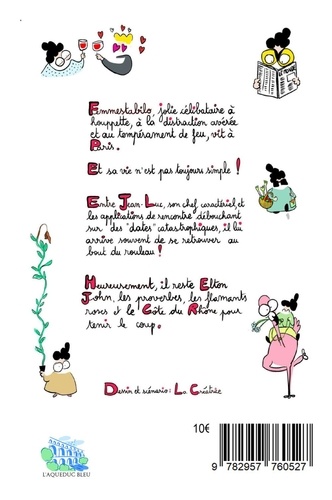 LE MONDE
Femmestabilo, jolie célibataire à
houppette, à la distraction avérée
et au tempérament de feu, vit à
Paris.
Et sa vie n'est pas toujours simple !
Entre Jean-Luc, son chef caractériel, et
les applications de rencontre débouchant
sur des "dates" catastrophiques, il lui
arrive souvent de se retrouver au
bout du rouleau !
Heureusement, il reste Elton
John, les proverbes, les flamants
roses et le Côte du Rhône pour
tenir le coup.
Dessin et scénario : La Créatrice
10€
L'AQUEDUC BLEU
9 782957 760527